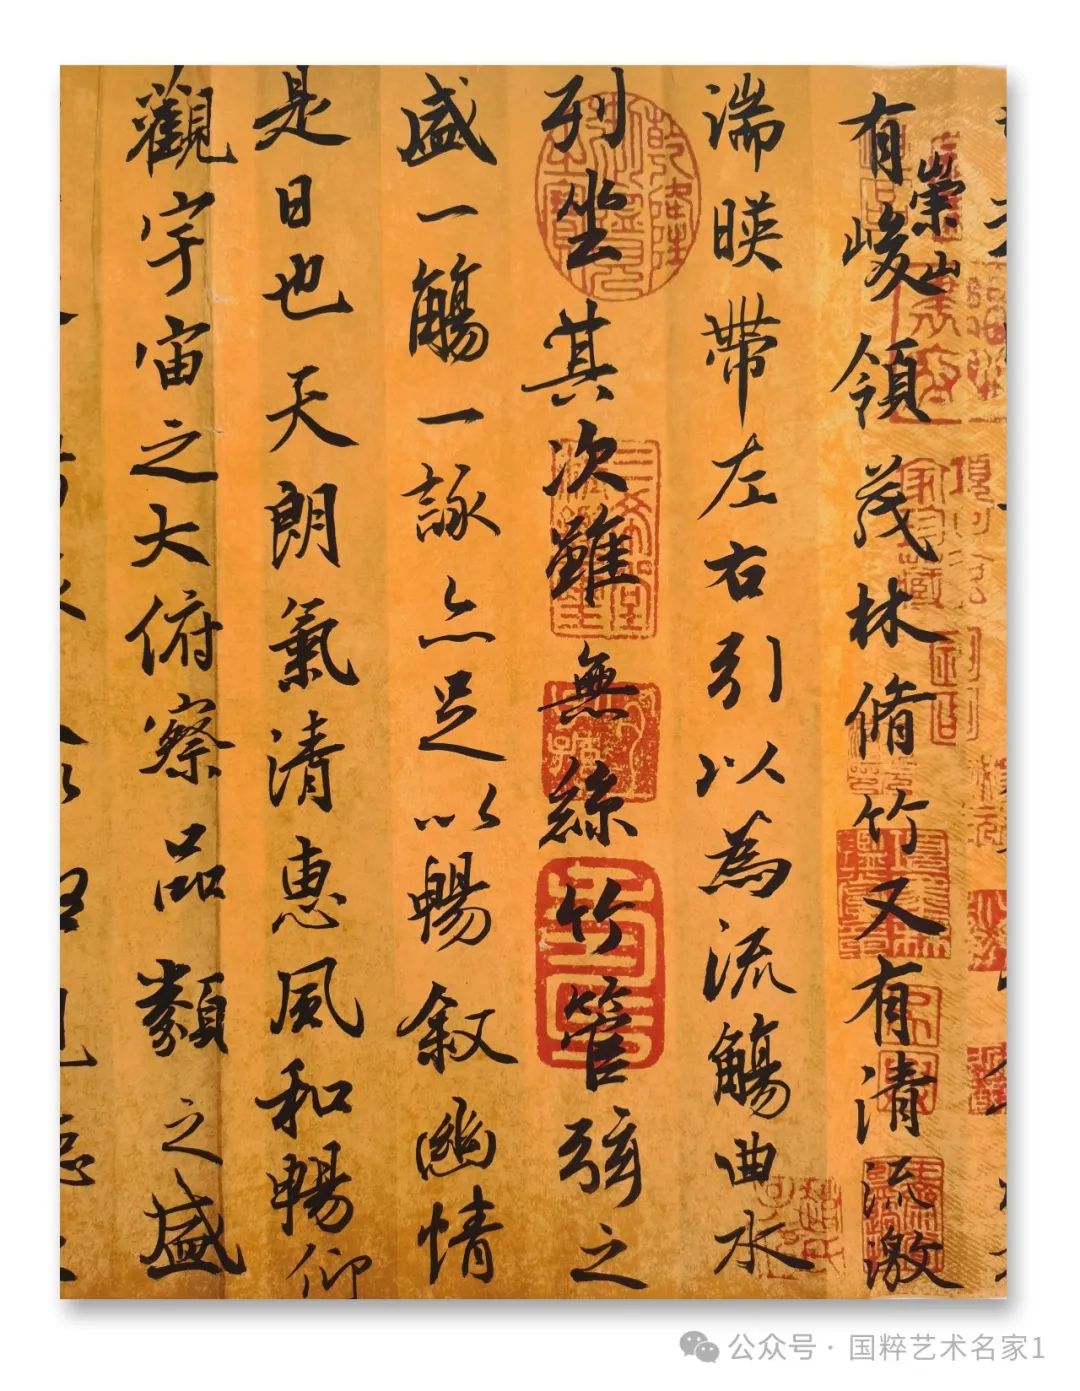 有崇山峻領茂林脩竹又有清流激
湍暎帶左右引以為流觴曲水
列坐其次雖無絲竹管弦之
盛一觴一詠亦足以暢敘幽情
是日也天朗氣清惠風和暢仰
觀宇宙之大俯察品類之盛
公众号·国粹艺术名家1